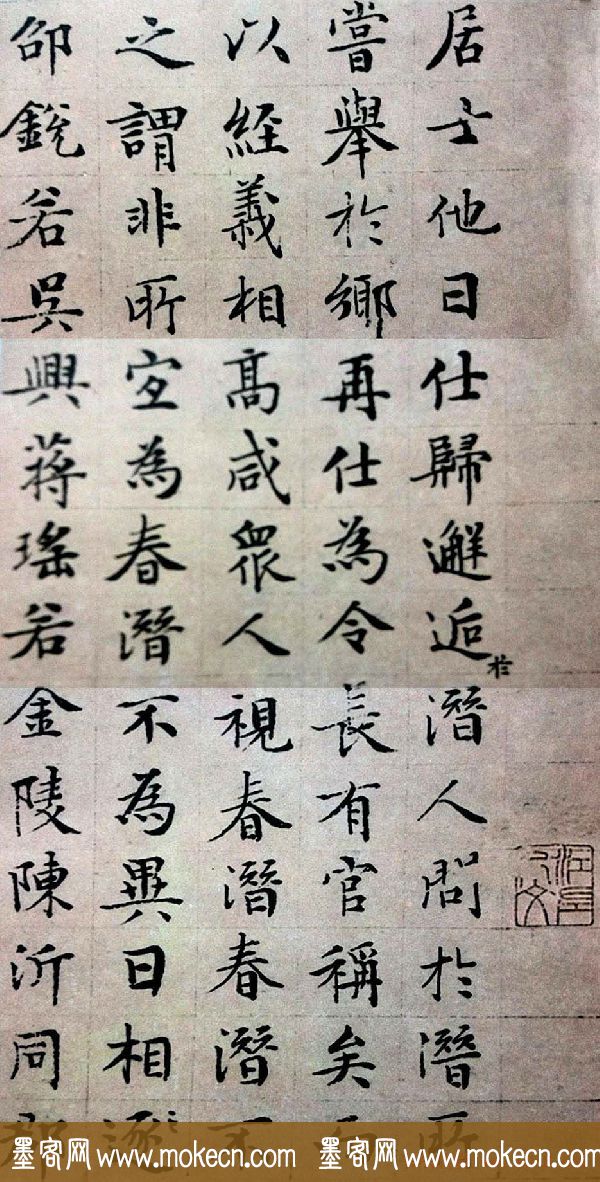 居士他日仕歸邂逅於潛人問於潛所
嘗舉於鄉再仕為令長有官稱矣
以經義相高咸衆人視春潛春潛不
之謂非所宜為春潛不為異日相逐
邵銳若吳興蔣瑤若金陵陳沂同郡
墨客网 www.mokecn.com 墨客网 www.mokecn.com